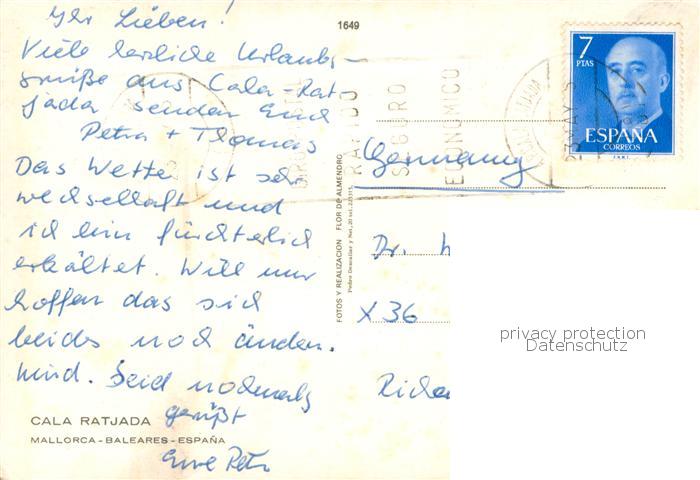 Ihr Lieben!
Viele herzliche Urlaubs-
grüße aus Cala-Rat-
jada senden Euch
Petra + Thomas
Das Wetter ist sehr
wechselhaft und
ich bin fürchterlich
erkältet. Will nur
hoffen das sich
beides noch ändern.
wird. Seid nochmals
gegrüßt
Eure Petra
CALA RATJADA
MALLORCA - BALEARES - ESPAÑA
1649
FOTOS Y REALIZACION FLOR DE ALMENDRO
RAPIDO
SEGURO
ECONOMICO
7
PTAS
ESPAÑA
CORREOS
Germany
Dr.
X 36
privacy protection
Datenschutz